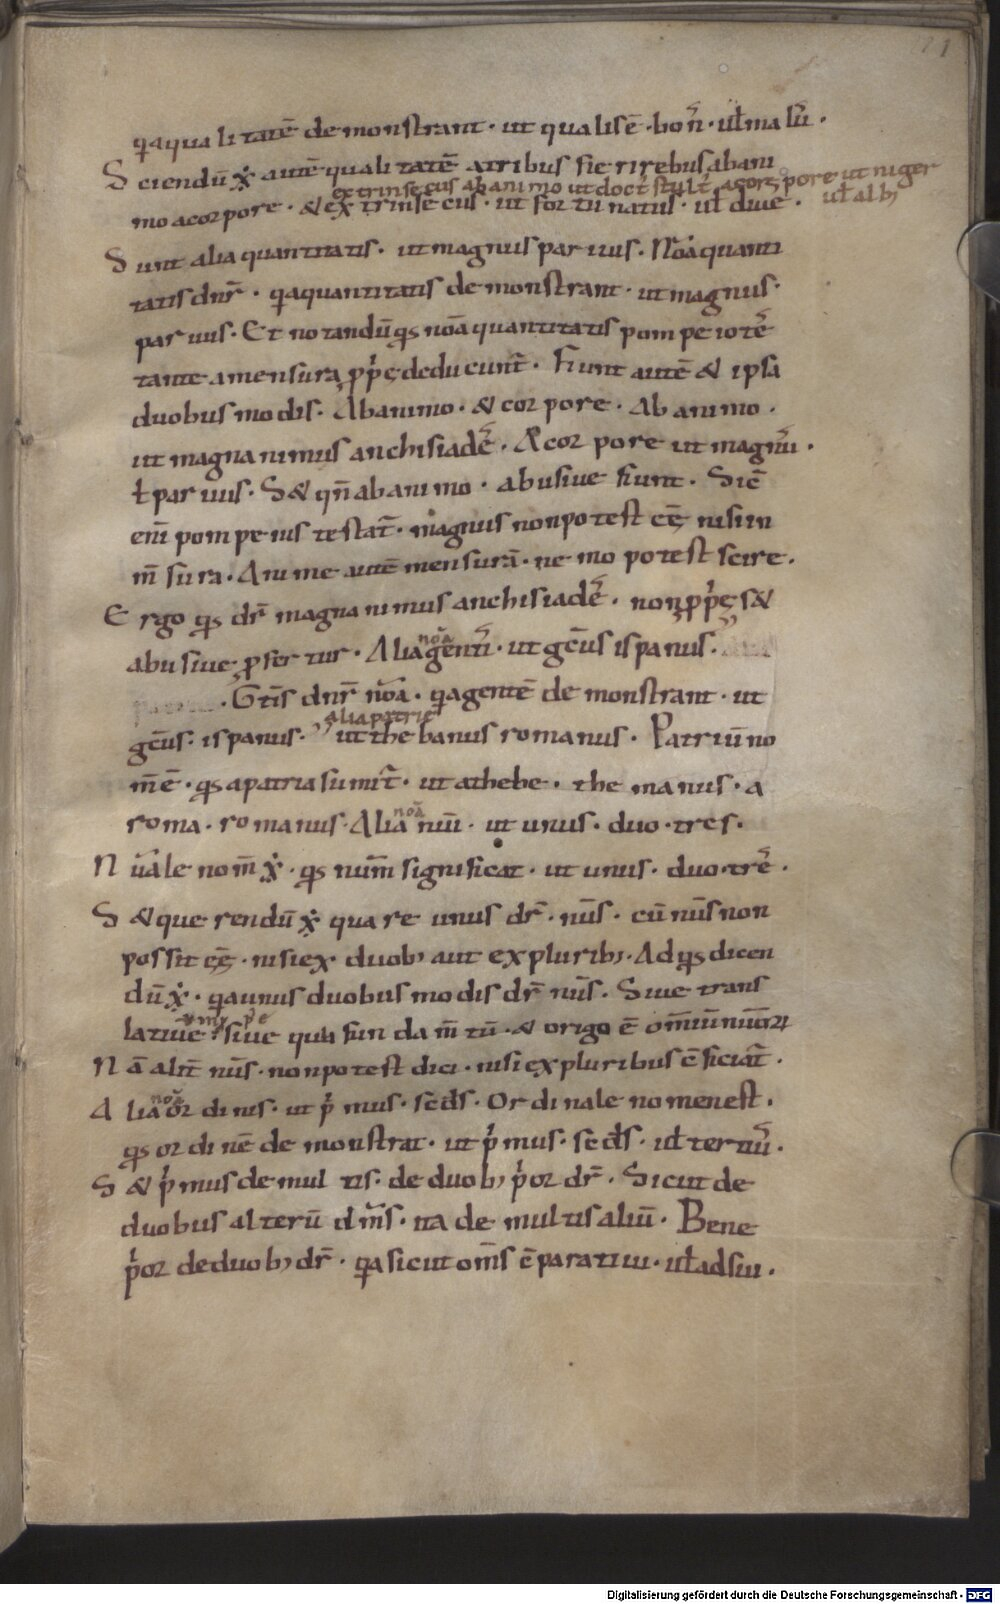 q̄a qualitatē demonstrant · ut qualis ē · bon᷒ · uł malu᷒ .
Sciendū ẋ autē qualitatē a tribus fieri rebus ab ani
extrinsecus ab animo ut doct᷒ stult᷒ a corpore ut niger
mo a corpore · & extrinsecus · ut fortunatus · uł diue .
uł alb᷒
Sunt alia quantitatis · ut magnus paruus · Nōa quanti
tatis dnr̄ · q̄a quantitatis demonstrant · ut magnus ·
paruus · Et notandū qs nōa quantitatis pompeio tes
tante a mensura p̱pę deducunt᷒ · Fiunt autē & ipsa
duobus modis · Ab animo · & corpore · Ab animo ·
ut magnanimus anchisiadēs · A corpore ut magnus ·
ł paruus · S& qn̄ ab animo · abusiue fiunt · Sic
eni̅ pompeius testat᷒ · magnus non potest eē nisi in
m̄sura · Anime autē mensurā · nemo potest scire ·
Ergo qs dr̄ magnanimus anchisiadēs · non p̱pę s&
abusiue p̱fertur · Alia nōa genti᷒ · ut gc̄us ispanus ·
· Gtis dnr̄ nōa · q̄a gentē demonstrant · ut
alia patrię
gc̄us · ispanus · ut thebanus romanus · Patriū no
m̄ ē · qs a patria sumit᷒ · ut a thebe · themanus · a
roma · romanus · Alia nōa nui̅ · ut unus · duo · tres ·
Nūale nom̄ ẋ · qs num̄ significat · ut unus · duo · tres ·
S& querendū ẋ quare unus dr̄ · nūs · cū nūs non
possit eē · nisi ex duob; aut ex plurib; · Ad qs dicen
dū ẋ · q̄a unus duobus modis dr̄ nūs · Siue trans
latiue siue quia fundam̄tū · & origo ē om̄iū nūorꝝ
Nā alit̄ nūs · non potest dici · nisi ex pluribus ēficiat᷒ ·
Alia nōa ordinis · ut p̍mus · sēds · Ordinale nomen est ·
qs ordinē demonstrat · ut p̍mus · sēds · uł tertius ·
S& p̍mus de multis · de duob; p̍or dr̄ · Sicut de
duobus alterū dm̄s · ita de multis aliū · Bene
p̍or de duob; dr̄ · q̄a sicut om̄s ēparatiui · uł adsui ·
Digitalisierung gefördert durch die Deutsche Forschungsgemeinschaft - DFG